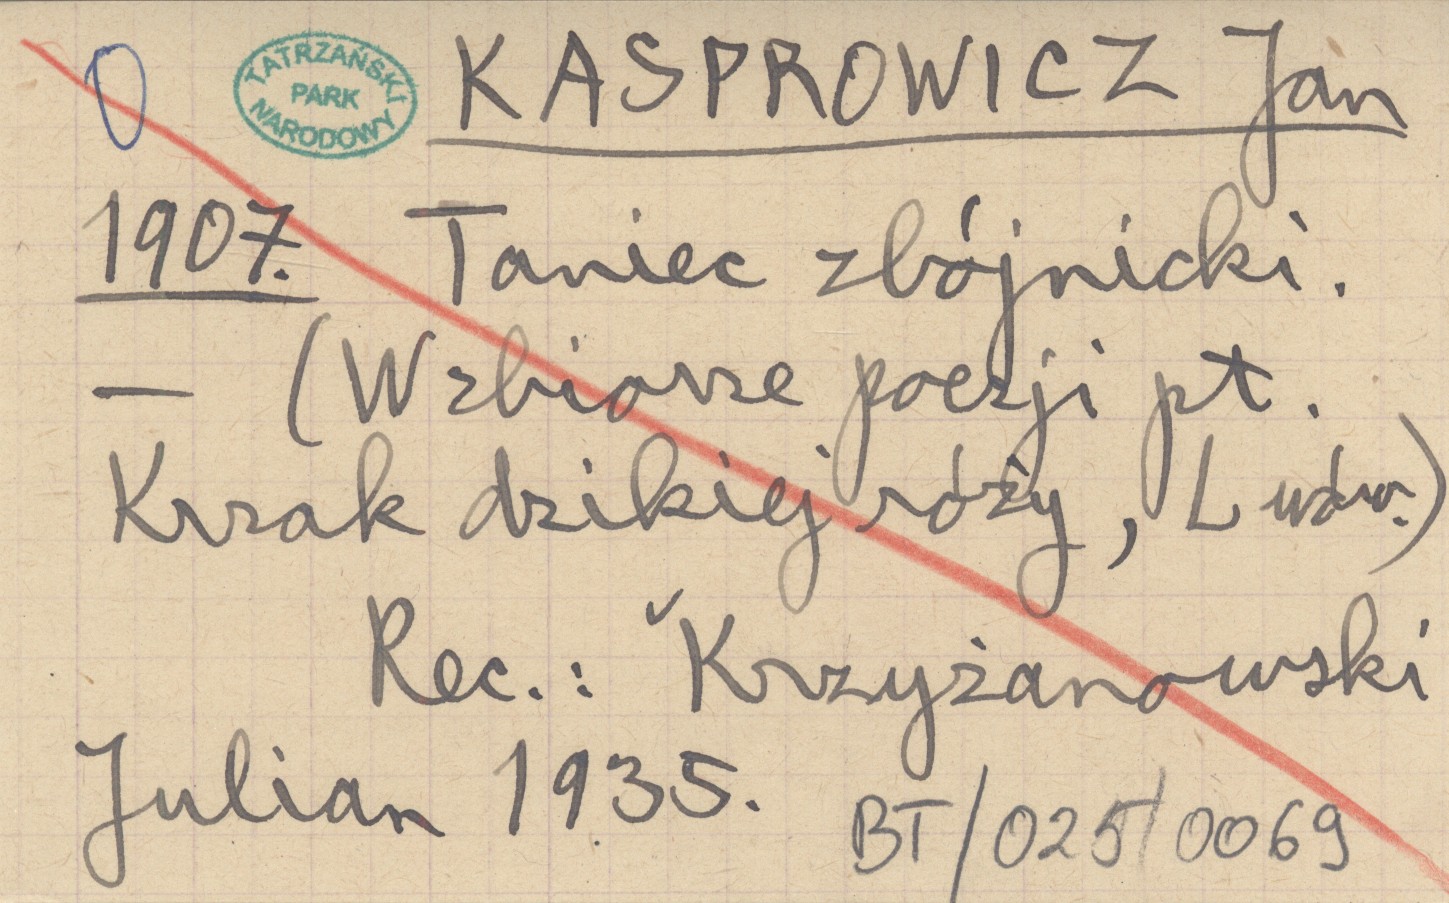 0
TATRZAŃSKI
PARK
NARODOWY
KASPROWICZ Jan
1907. Taniec zbójnicki.
— (W zbiorze poezji pt.
Krzak dzikiej róży, Lwów.)
Rec.: Krzyżanowski
Julian 1935.
BT/025/0069